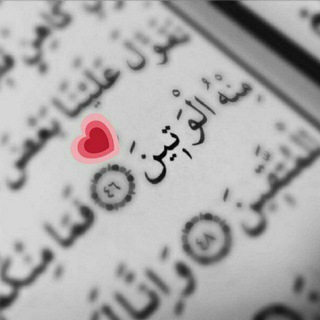 تَقَوَّلَ عَلَيْنَا بَعْضَ
مِنْهُ الْوَتِينَ ٤٦ فَمَا مِنكُم
لِّلْمُتَّقِينَ ٤٨ وَإِنَّا لَ